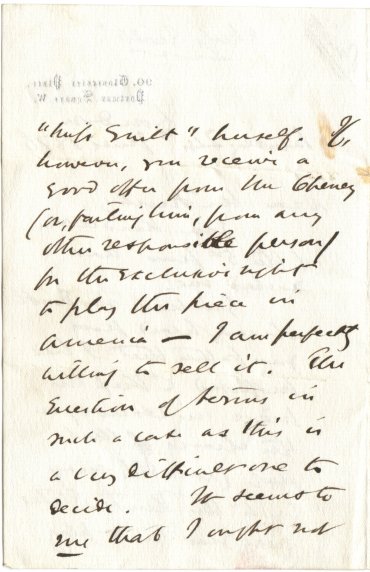 90. Gloucester Place
Portman Square W.
"Miss Gwilt" herself. If,
however, you receive a
good offer from Mr Cheney
(or, failing him, from any
other responsible person)
for the exclusive right
to play the piece in
America — I am perfectly
willing to sell it. The
question of terms in
such a case as this is
a very difficult one to
decide. It seems to
me that I ought not